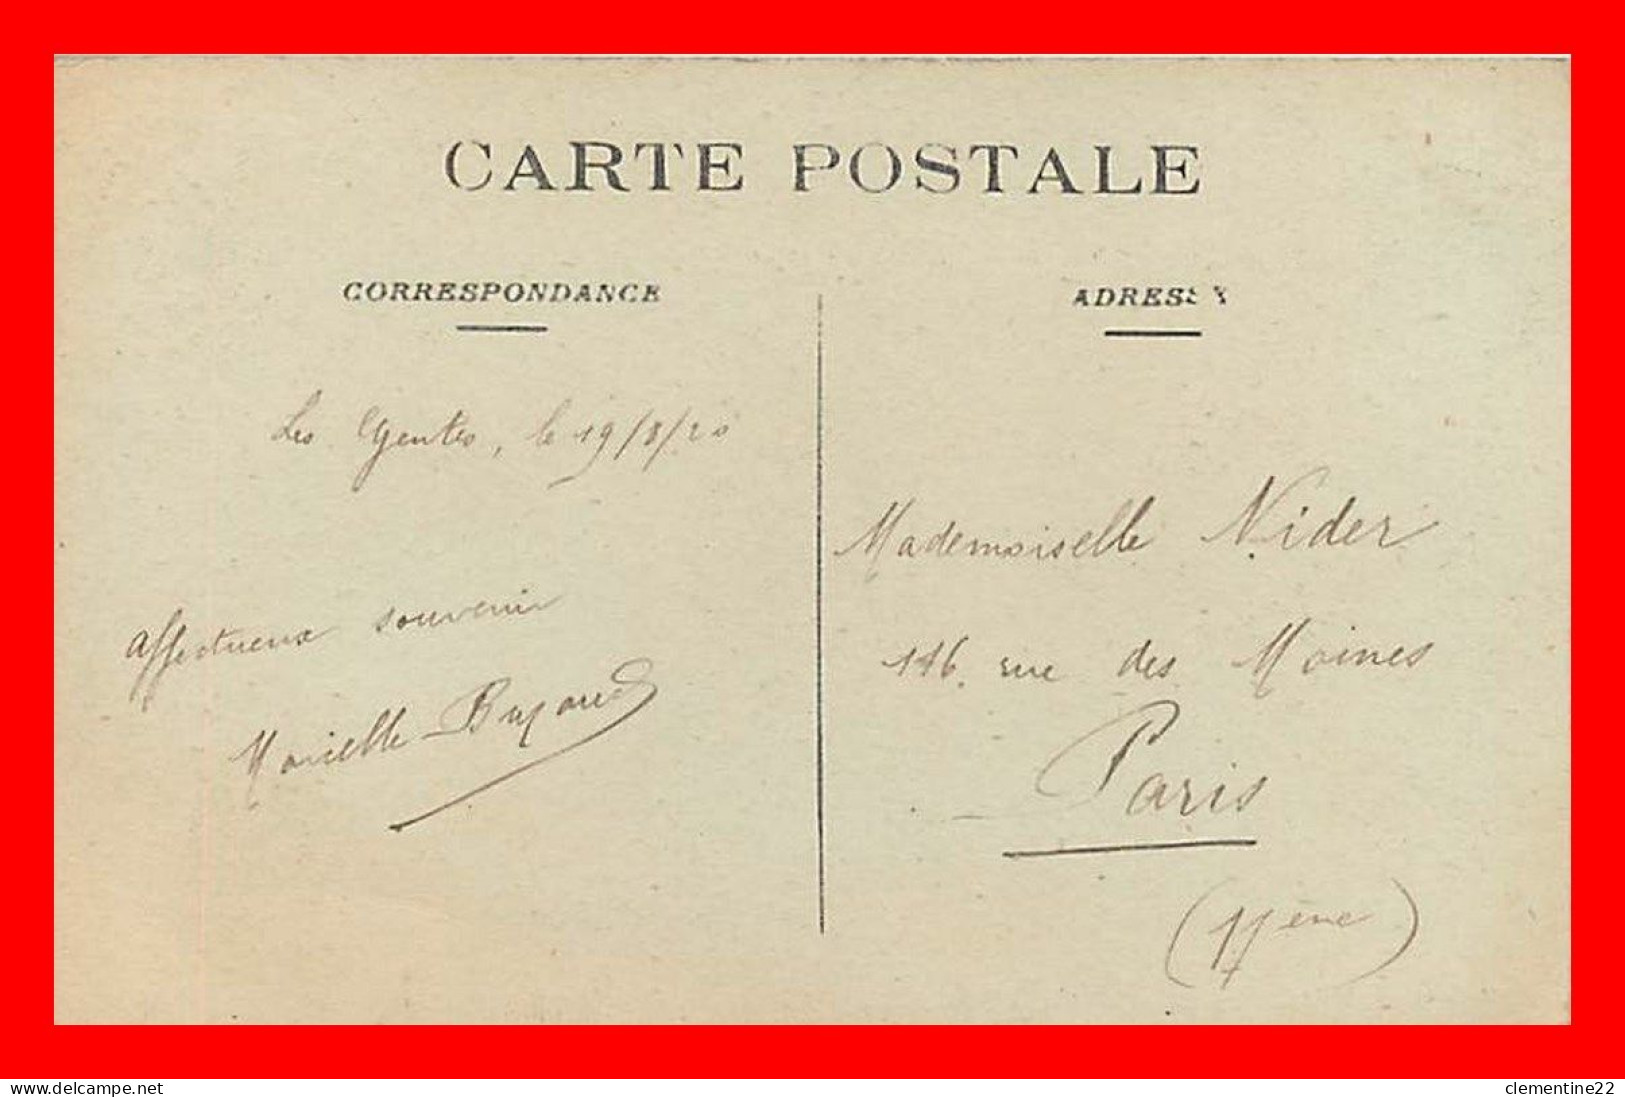 CARTE POSTALE
CORRESPONDANCE
ADRESSE
Les Gentes, le 19/8/20
Affectueux souvenir
Marielle
Mademoiselle Nider
116 rue des Moines
Paris
(17ème)
www.delcampe.net
clementine22